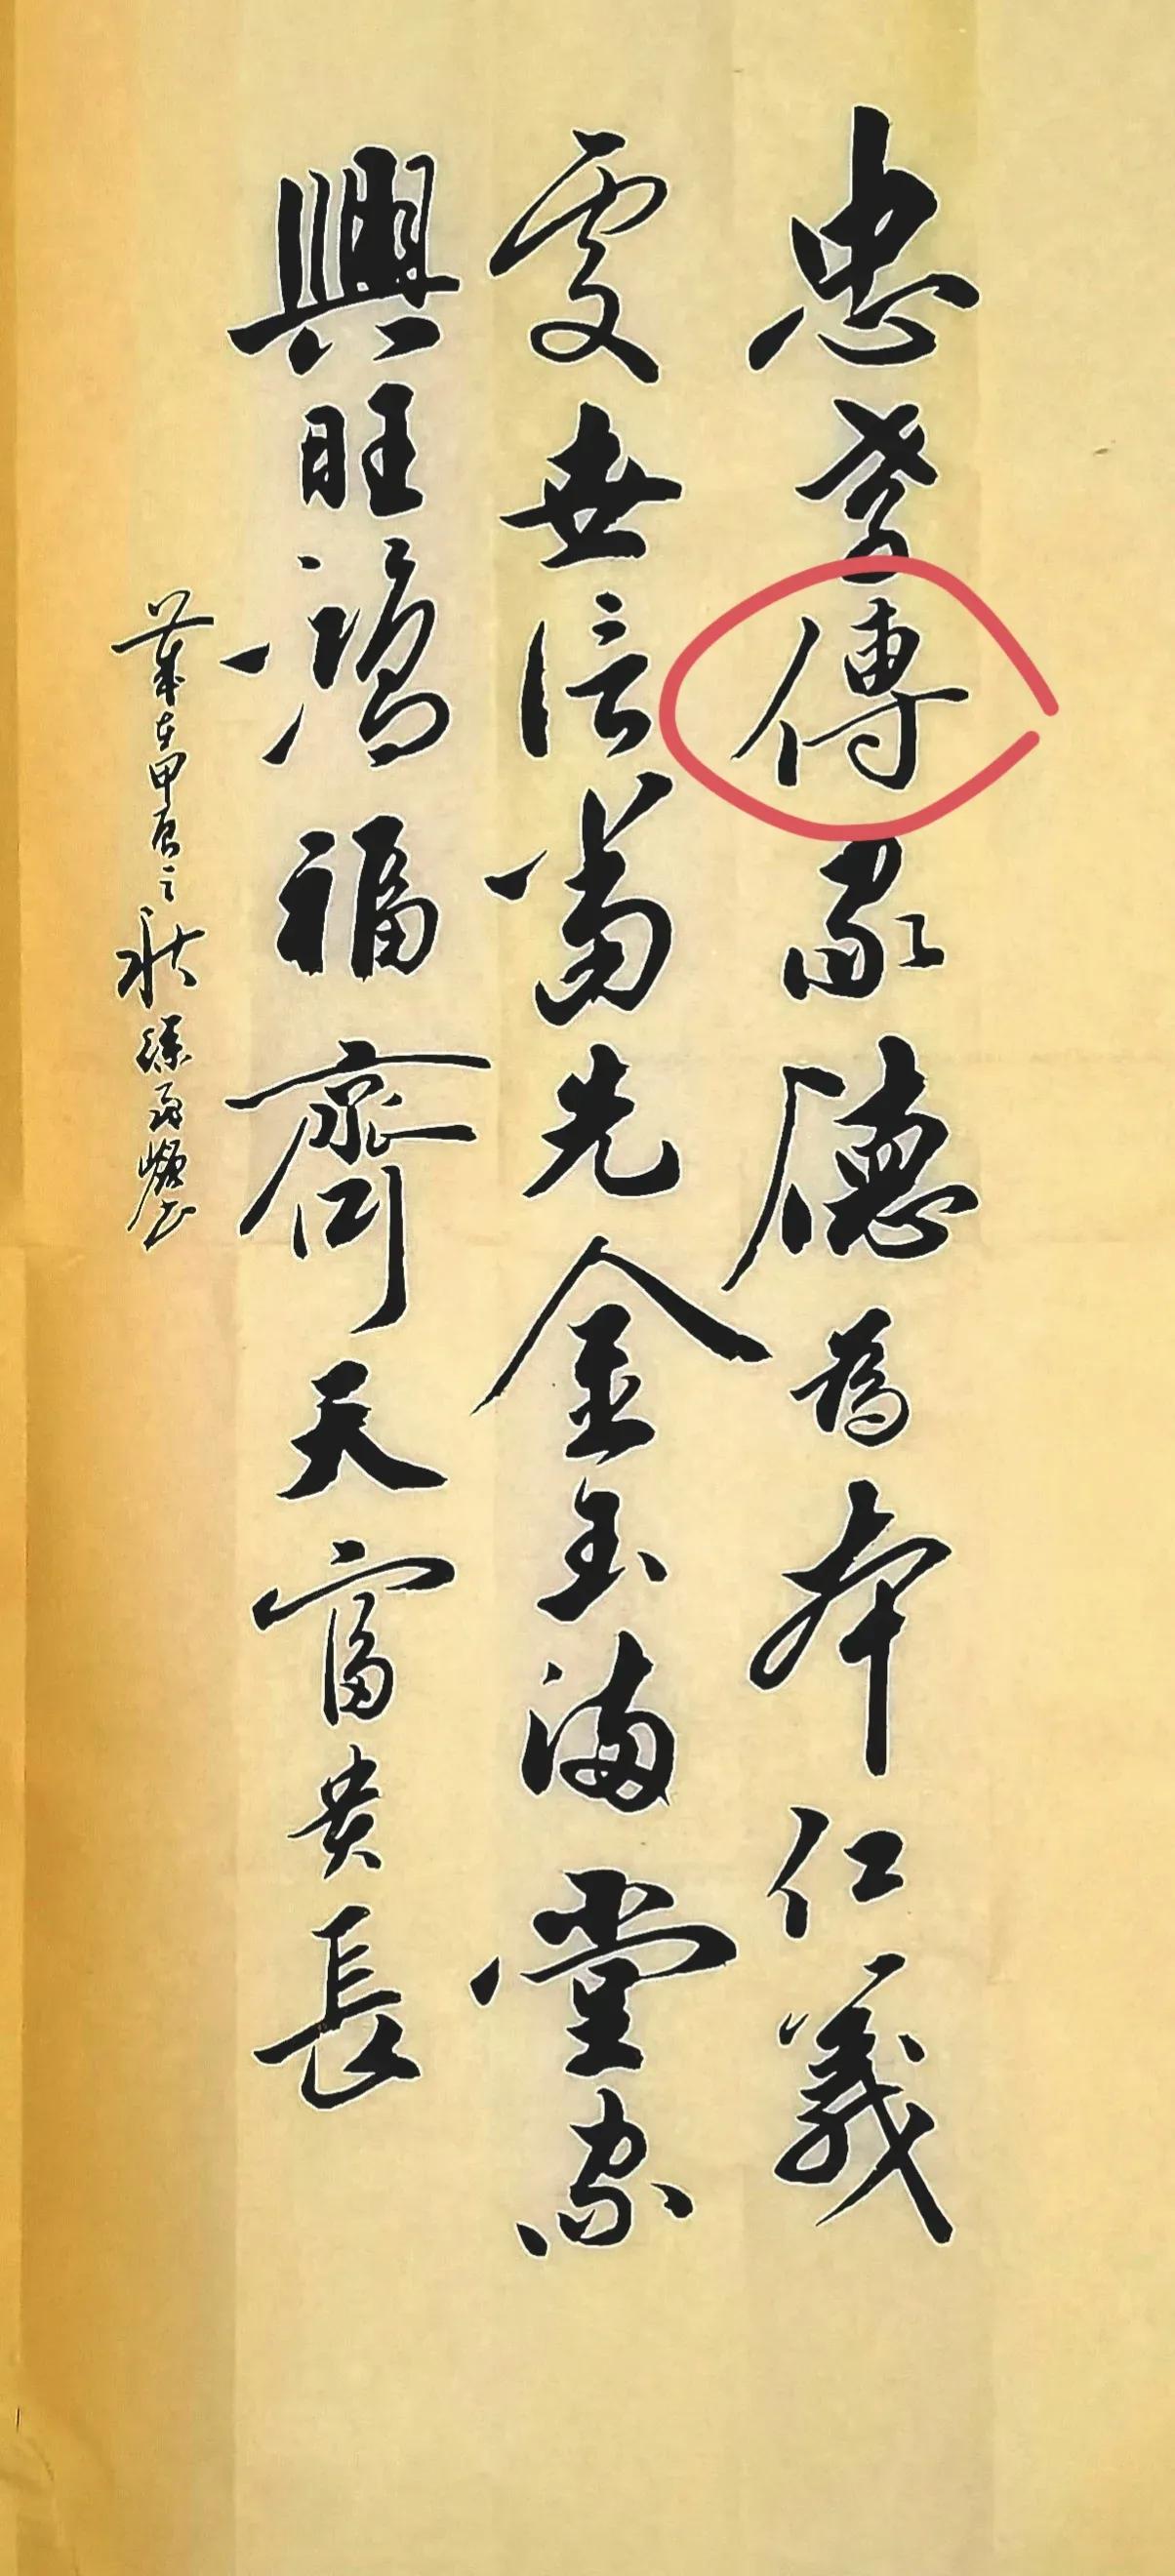 忠孝傳家德為本仁義
處世信當先金玉滿堂家
興旺鴻福齊天富貴長
歲在甲辰之秋